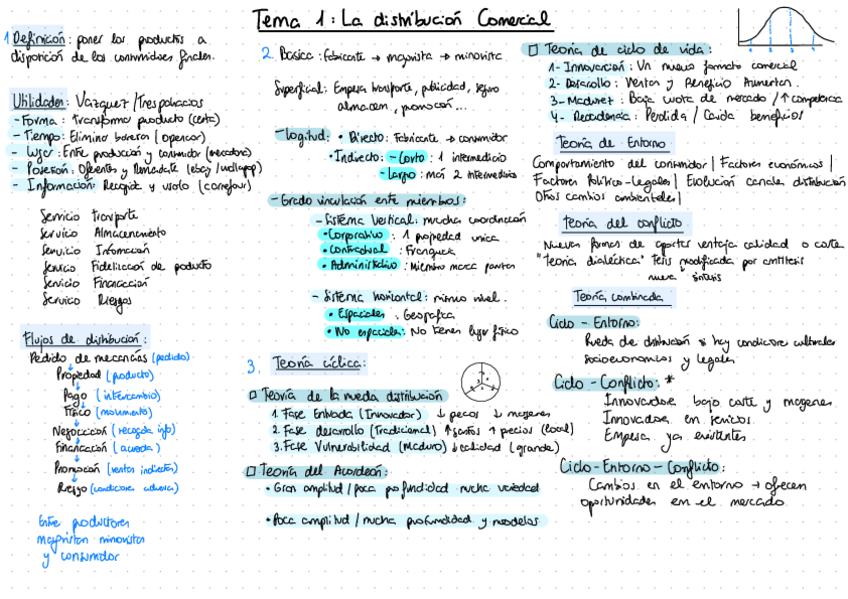 Tema 1: La distribución Comercial
1 Definición: poner los productos a
disposición de los consumidores finales.
Utilidades: Vázquez / Trespalacios
- Forma: Transforma producto
- Tiempo: Elimina barreras
- Lugar: Entre producción y consumidor (mercadona)
- Posesión: Oferentes y Demandante (ebay / wallapop)
- Información: Recogida y usarla (carrefour)
Servicio transporte
Servicio Almacenamiento
Servicio Información
Servicio Fidelización de producto
Servicio Financiación
Servicio Riesgos
Flujos de distribución:
Pedido de mercancías (pedido)
Propiedad (producto)
Pago (intercambio)
Físico (movimiento)
Negociación (recogida info)
Financiación (acuerdo)
Promoción (ventas indirectas)
Riesgo (condiciones adversas)
Entre productores
mayoristas minoristas
y consumidor
2. Básica: Fabricante → mayorista → minorista
Superficial: Empresa transporte, publicidad, seguro
almacen, promoción...
- Logitud: • Directo: Fabricante → consumidor
• Indirecto: - Corto: 1 intermediario
- Largo: más 2 intermediarios
- Grado vinculación entre miembros:
- Sistema Vertical: mucha coordinación
• Corporativo: 1 propiedad única
• Contractual: Franquicia
• Administrativo: Miembro marca pautas
- Sistema horizontal: mismo nivel.
• Espaciales: Geografica
• No espaciales: No tienen lugar físico
3. Teoría cíclica:
Teoría de la rueda distribución
1. Fase Entrada (Innovador) ↓ precios ↓ margenes
2. Fase desarrollo (Tradicional) ↑ gastos ↑ precios (local)
3. Fase Vulnerabilidad (Maduro) ↓ calidad (grande)
Teoría del Acordeón:
• Gran amplitud / poca profundidad mucha variedad
• Poca amplitud / mucha profundidad y modelos
Teoría de ciclo de vida:
1- Innovación: Un nuevo formato comercial
2- Desarrollo: Ventas y Beneficio Aumentan.
3- Madurez: Baja cuota de mercado / ↑ competencia
4- Decadencia: Perdida / Caida beneficios
Teoría de Entorno
Comportamiento del consumidor | Factores económicos |
Factores Político-Legales | Evolución canales distribución
Otros cambios ambientales |
Teoría del conflicto
Nuevas formas de aportar ventaja calidad o coste
"Teoría dialéctica" Tesis modificada por antítesis
nueva síntesis
Teoría combinada
Ciclo - Entorno:
Rueda de distribución si hay condiciones culturales
socioeconomicos y legales
Ciclo - Conflicto: *
Innovadores bajo coste y margenes
Innovadores en servicios
Empresas ya existentes
Ciclo-Entorno-Conflicto:
Cambios en el entorno → ofrecen
oportunidades en el mercado